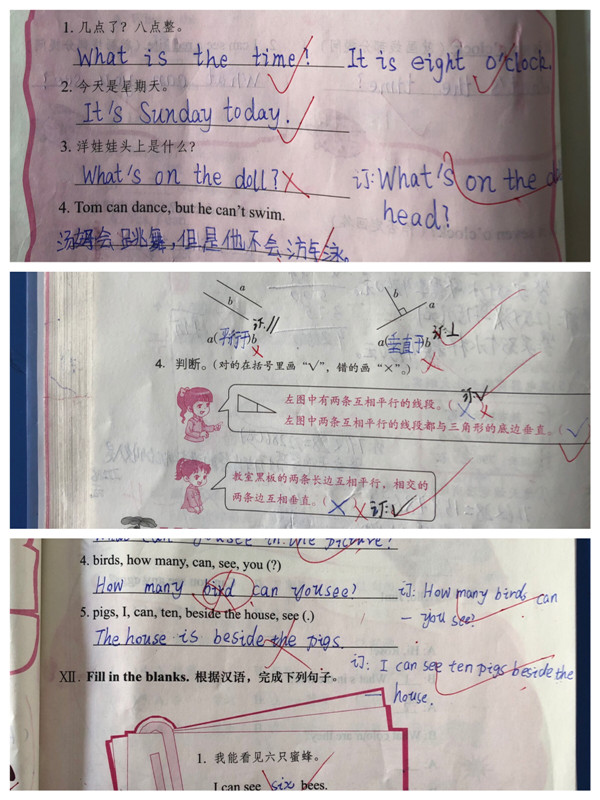 1. 几点了？八点整。
What is the time? It is eight o'clock.
2. 今天是星期天。
It's Sunday today.
3. 洋娃娃头上是什么？
What's on the doll? 订: What's on the
head?
4. Tom can dance, but he can't swim.
汤姆会跳舞,但是他不会游泳。
a b
b a
订://  订:⊥
a(平行于)b a(垂直于)b
4. 判断。(对的在括号里画“√”，错的画“×”。)
左图中有两条互相平行的线段。(× 订:√
左图中两条互相平行的线段都与三角形的底边垂直。(√
教室黑板的两条长边互相平行，相交的
两条边互相垂直。(× 订:√
can you see in the picture?
4. birds, how many, can, see, you (?)
How many bird can yousee? 订: How many birds can
you see?
5. pigs, I, can, ten, beside the house, see (.)
The house is beside the pigs.
订: I can see ten pigs beside the
house.
XII. Fill in the blanks. 根据汉语，完成下列句子。
1. 我能看见六只蜜蜂。
I can see six bees.